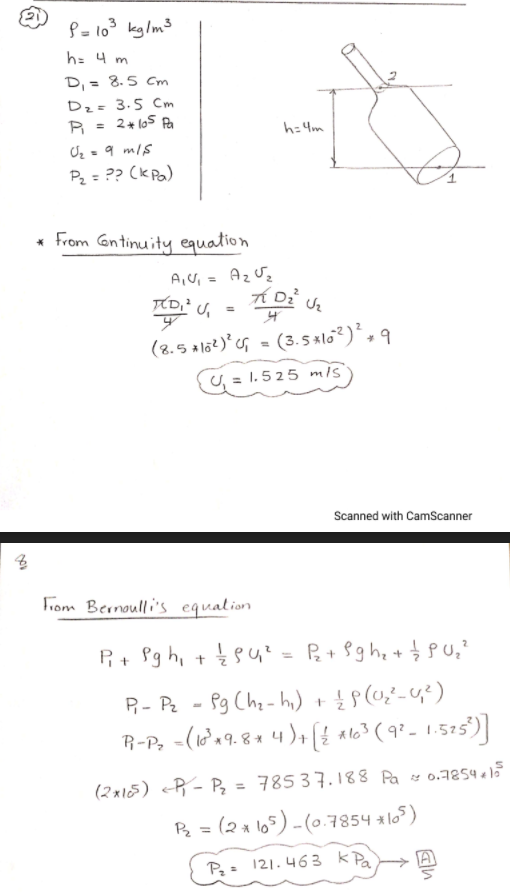 21
ρ = 10³ kg/m³
h = 4 m
D₁ = 8.5 cm
D₂ = 3.5 cm
P₁ = 2*10⁵ Pa
υ₂ = 9 m/s
P₂ = ?? (kPa)
2
h=4m
1
* From Continuity equation
A₁υ₁ = A₂υ₂
πD₁²/4 υ₁ = πD₂²/4 υ₂
(8.5*10²)² υ₁ = (3.5*10⁻²)² * 9
υ₁ = 1.525 m/s
Scanned with CamScanner
8
From Bernoulli's equation
P₁ + ρgh₁ + ½ρυ₁² = P₂ + ρgh₂ + ½ρυ₂²
P₁ - P₂ = ρg(h₂-h₁) + ½ρ(υ₂²-υ₁²)
P₁-P₂ = (10³*9.8*4)+[½*10³(9²-1.525²)]
(2*10⁵) ← P₁ - P₂ = 78537.188 Pa ≈ 0.7854*10⁵
P₂ = (2*10⁵)-(0.7854*10⁵)
P₂ = 121.463 kPa → A
5